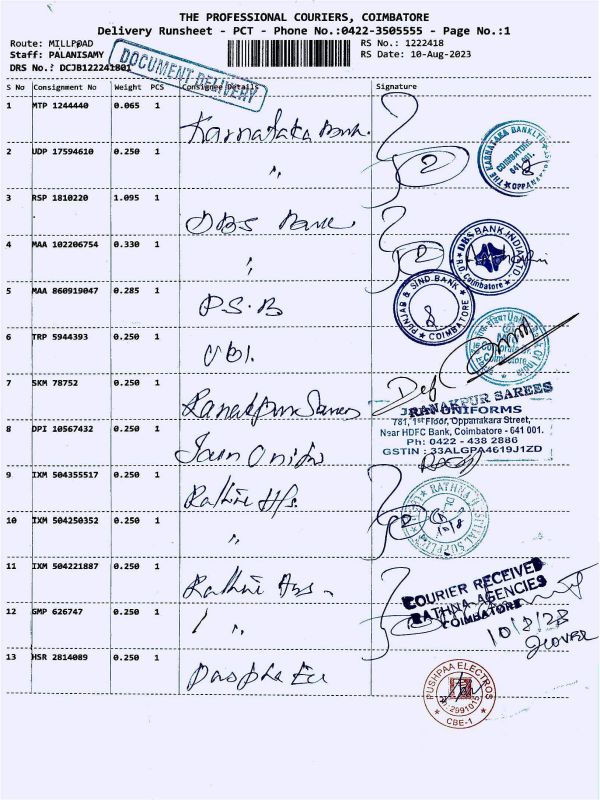 THE PROFESSIONAL COURIERS, COIMBATORE
Delivery Runsheet - PCT - Phone No.:0422-3505555 - Page No.:1
Route: MILLROAD
RS No.: 1222418
Staff: PALANISAMY
RS Date: 10-Aug-2023
DRS No.: DCJB122241801
DOCUMENT DELIVERY
S No Consignment No Weight PCS Consignee Details Signature
1 MTP 1244440 0.065 1 Karnataka Bank.
THE KARNATAKA BANK LTD
COIMBATORE
641 001.
OPPANA
2 UDP 17594610 0.250 1 "
2
3 RSP 1810220 1.095 1 DBS Bank
4 MAA 102206754 0.330 1 "
DBS BANK INDIA LTD
R.O. Coimbatore
5 MAA 860919047 0.285 1 P.S.B
PUNJAB & SIND BANK
COIMBATORE
6 TRP 5944393 0.250 1 UBI.
Coimbatore
7 SKM 78752 0.250 1 Ranakpur Sarees
RANAKPUR SAREES
JAIN UNIFORMS
781, 1st Floor, Oppanakara Street,
Near HDFC Bank, Coimbatore - 641 001.
Ph: 0422 - 438 2886
GSTIN : 33ALGPA4619J1ZD
8 DPI 10567432 0.250 1 Jain Unifo
9 IXM 504355517 0.250 1 Rathna Hs.
10 IXM 504250352 0.250 1 "
10/8
11 IXM 504221887 0.250 1 Rathna Ags
COURIER RECEIVED
RATHNA AGENCIES
COIMBATORE
12 GMP 626747 0.250 1 "
10/8/23
13 HSR 2814089 0.250 1 Puspha Ele
PUSHPAA ELECTROS
2991015
CBE-1